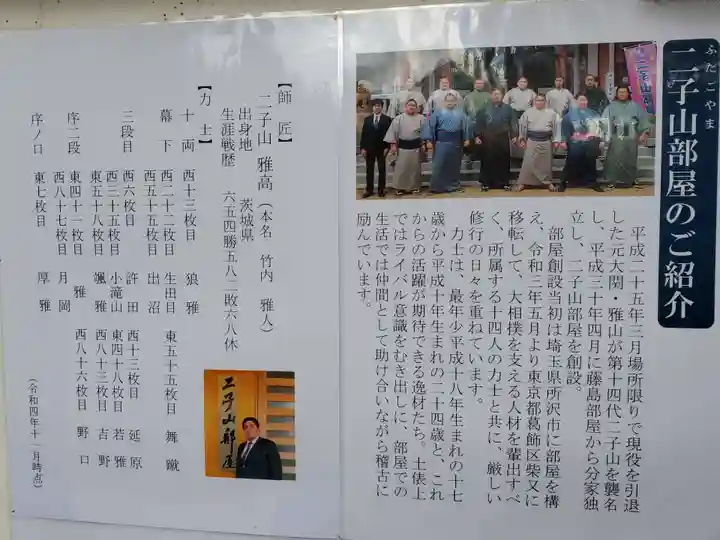 ふたごやま
二子山部屋のご紹介
平成二十五年三月場所限りで現役を引退
した元大関・雅山が第十四代二子山を襲名
し、平成三十年四月に藤島部屋から分家独
立し、二子山部屋を創設。
部屋創設当初は埼玉県所沢市に部屋を構
え、令和三年五月より東京都葛飾区柴又に
移転して、大相撲を支える人材を輩出すべ
く、所属する十四人の力士と共に、厳しい
修行の日々を重ねています。
力士は、最年少平成十八年生まれの十七
歳から平成十年生まれの二十四歳と、これ
からの活躍が期待できる逸材たち。土俵上
ではライバル意識をむき出しに、部屋での
生活では仲間として助け合いながら稽古に
励んでいます。
二子山部屋
【師匠】
二子山 雅高（本名 竹内 雅人）
出身地 茨城県
生涯戦歴 六五四勝五八二敗六八休
【力士】
十両 西十三枚目 狼雅
幕下 西二十二枚目 生田目 東五十五枚目 舞蹴
西五十五枚目 出沼
三段目 西六枚目 許田 西十三枚目 延原
西三十五枚目 小滝山 東四十八枚目 若雅
東五十八枚目 颯雅 西八十三枚目 吉野
序二段 東四十一枚目 雅 西八十六枚目 野口
西八十七枚目 月岡
序ノ口 東七枚目 厚雅
（令和四年十一月時点）
二子山部屋